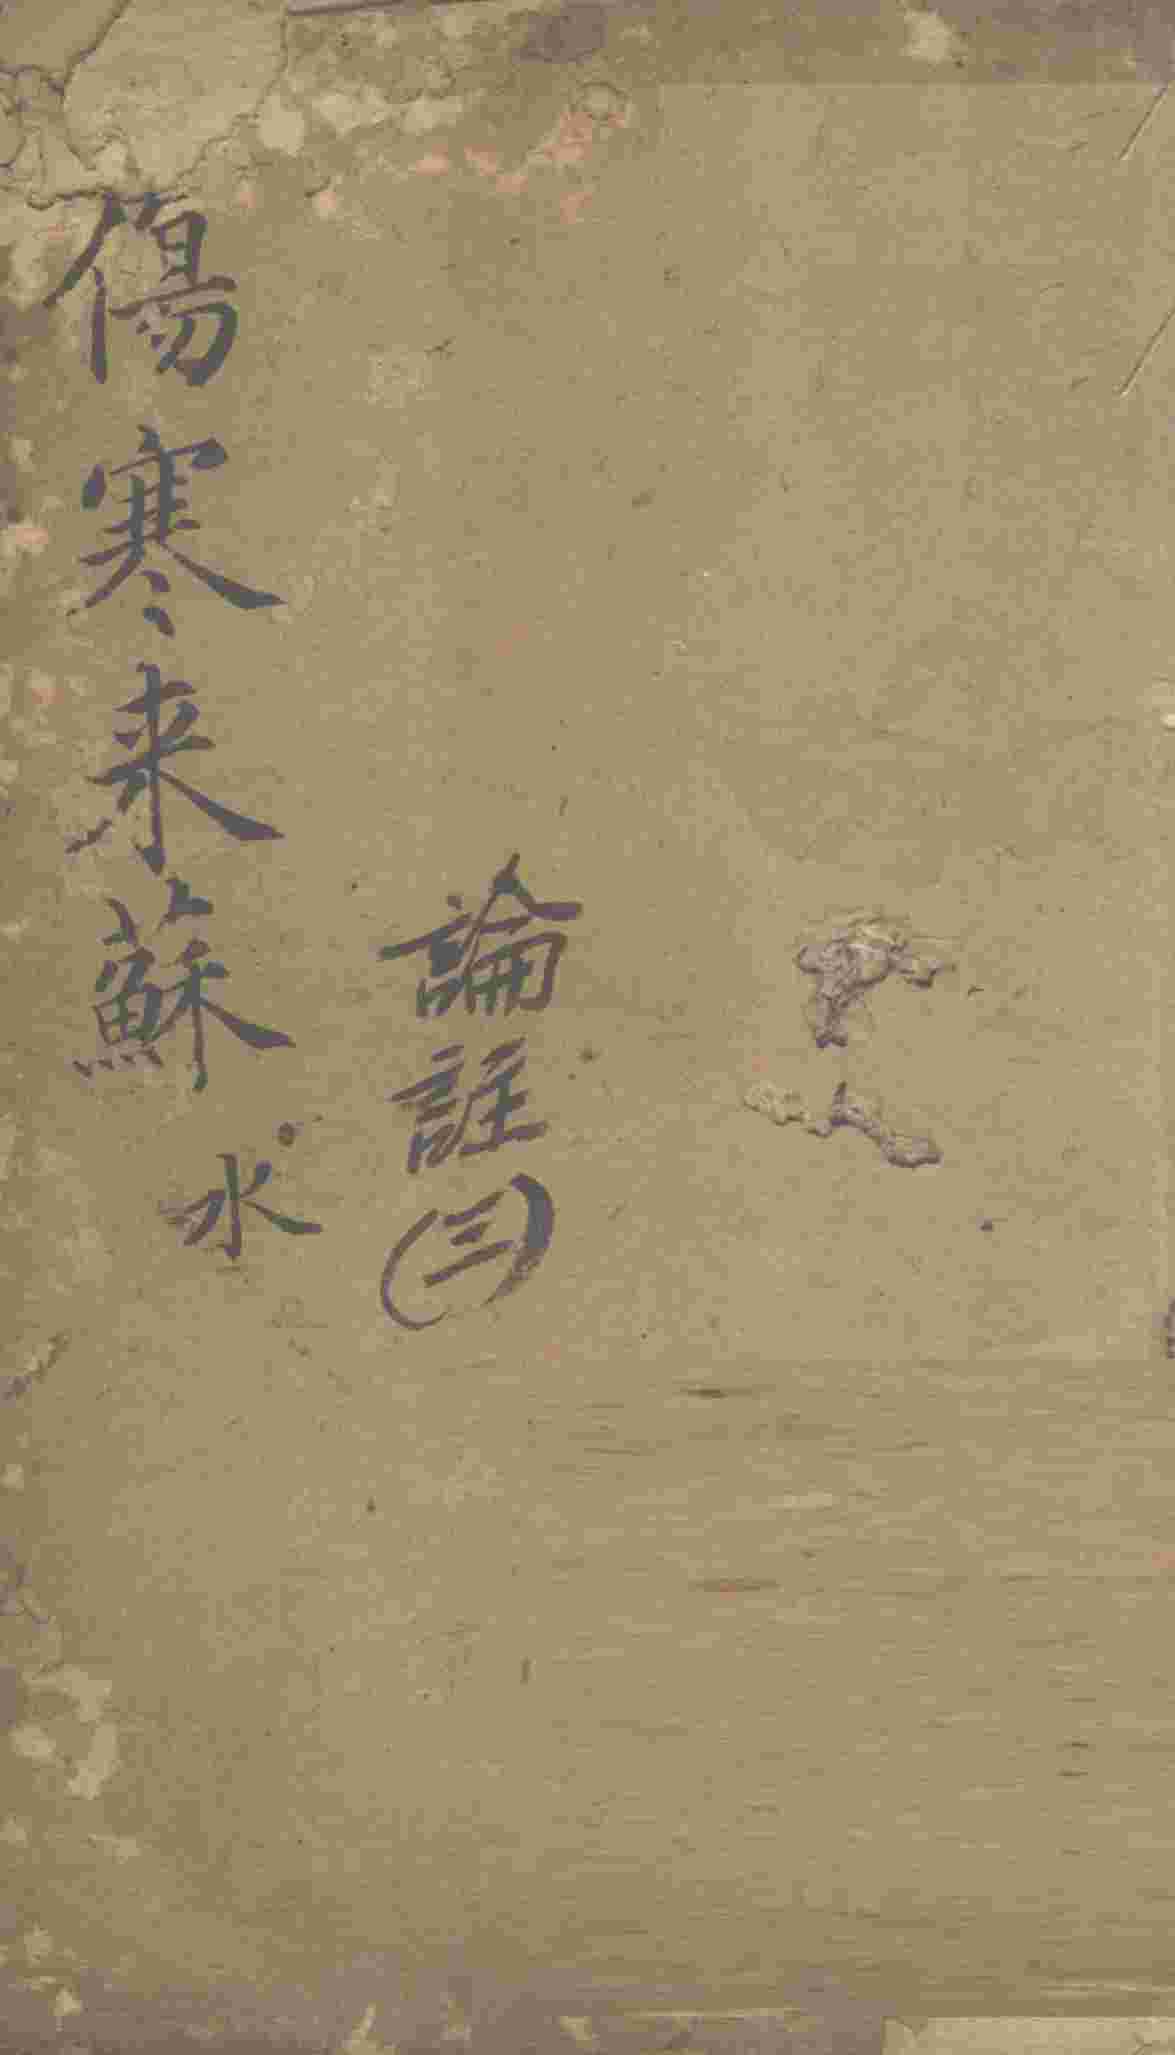 論註(三)
傷寒来蘇
水